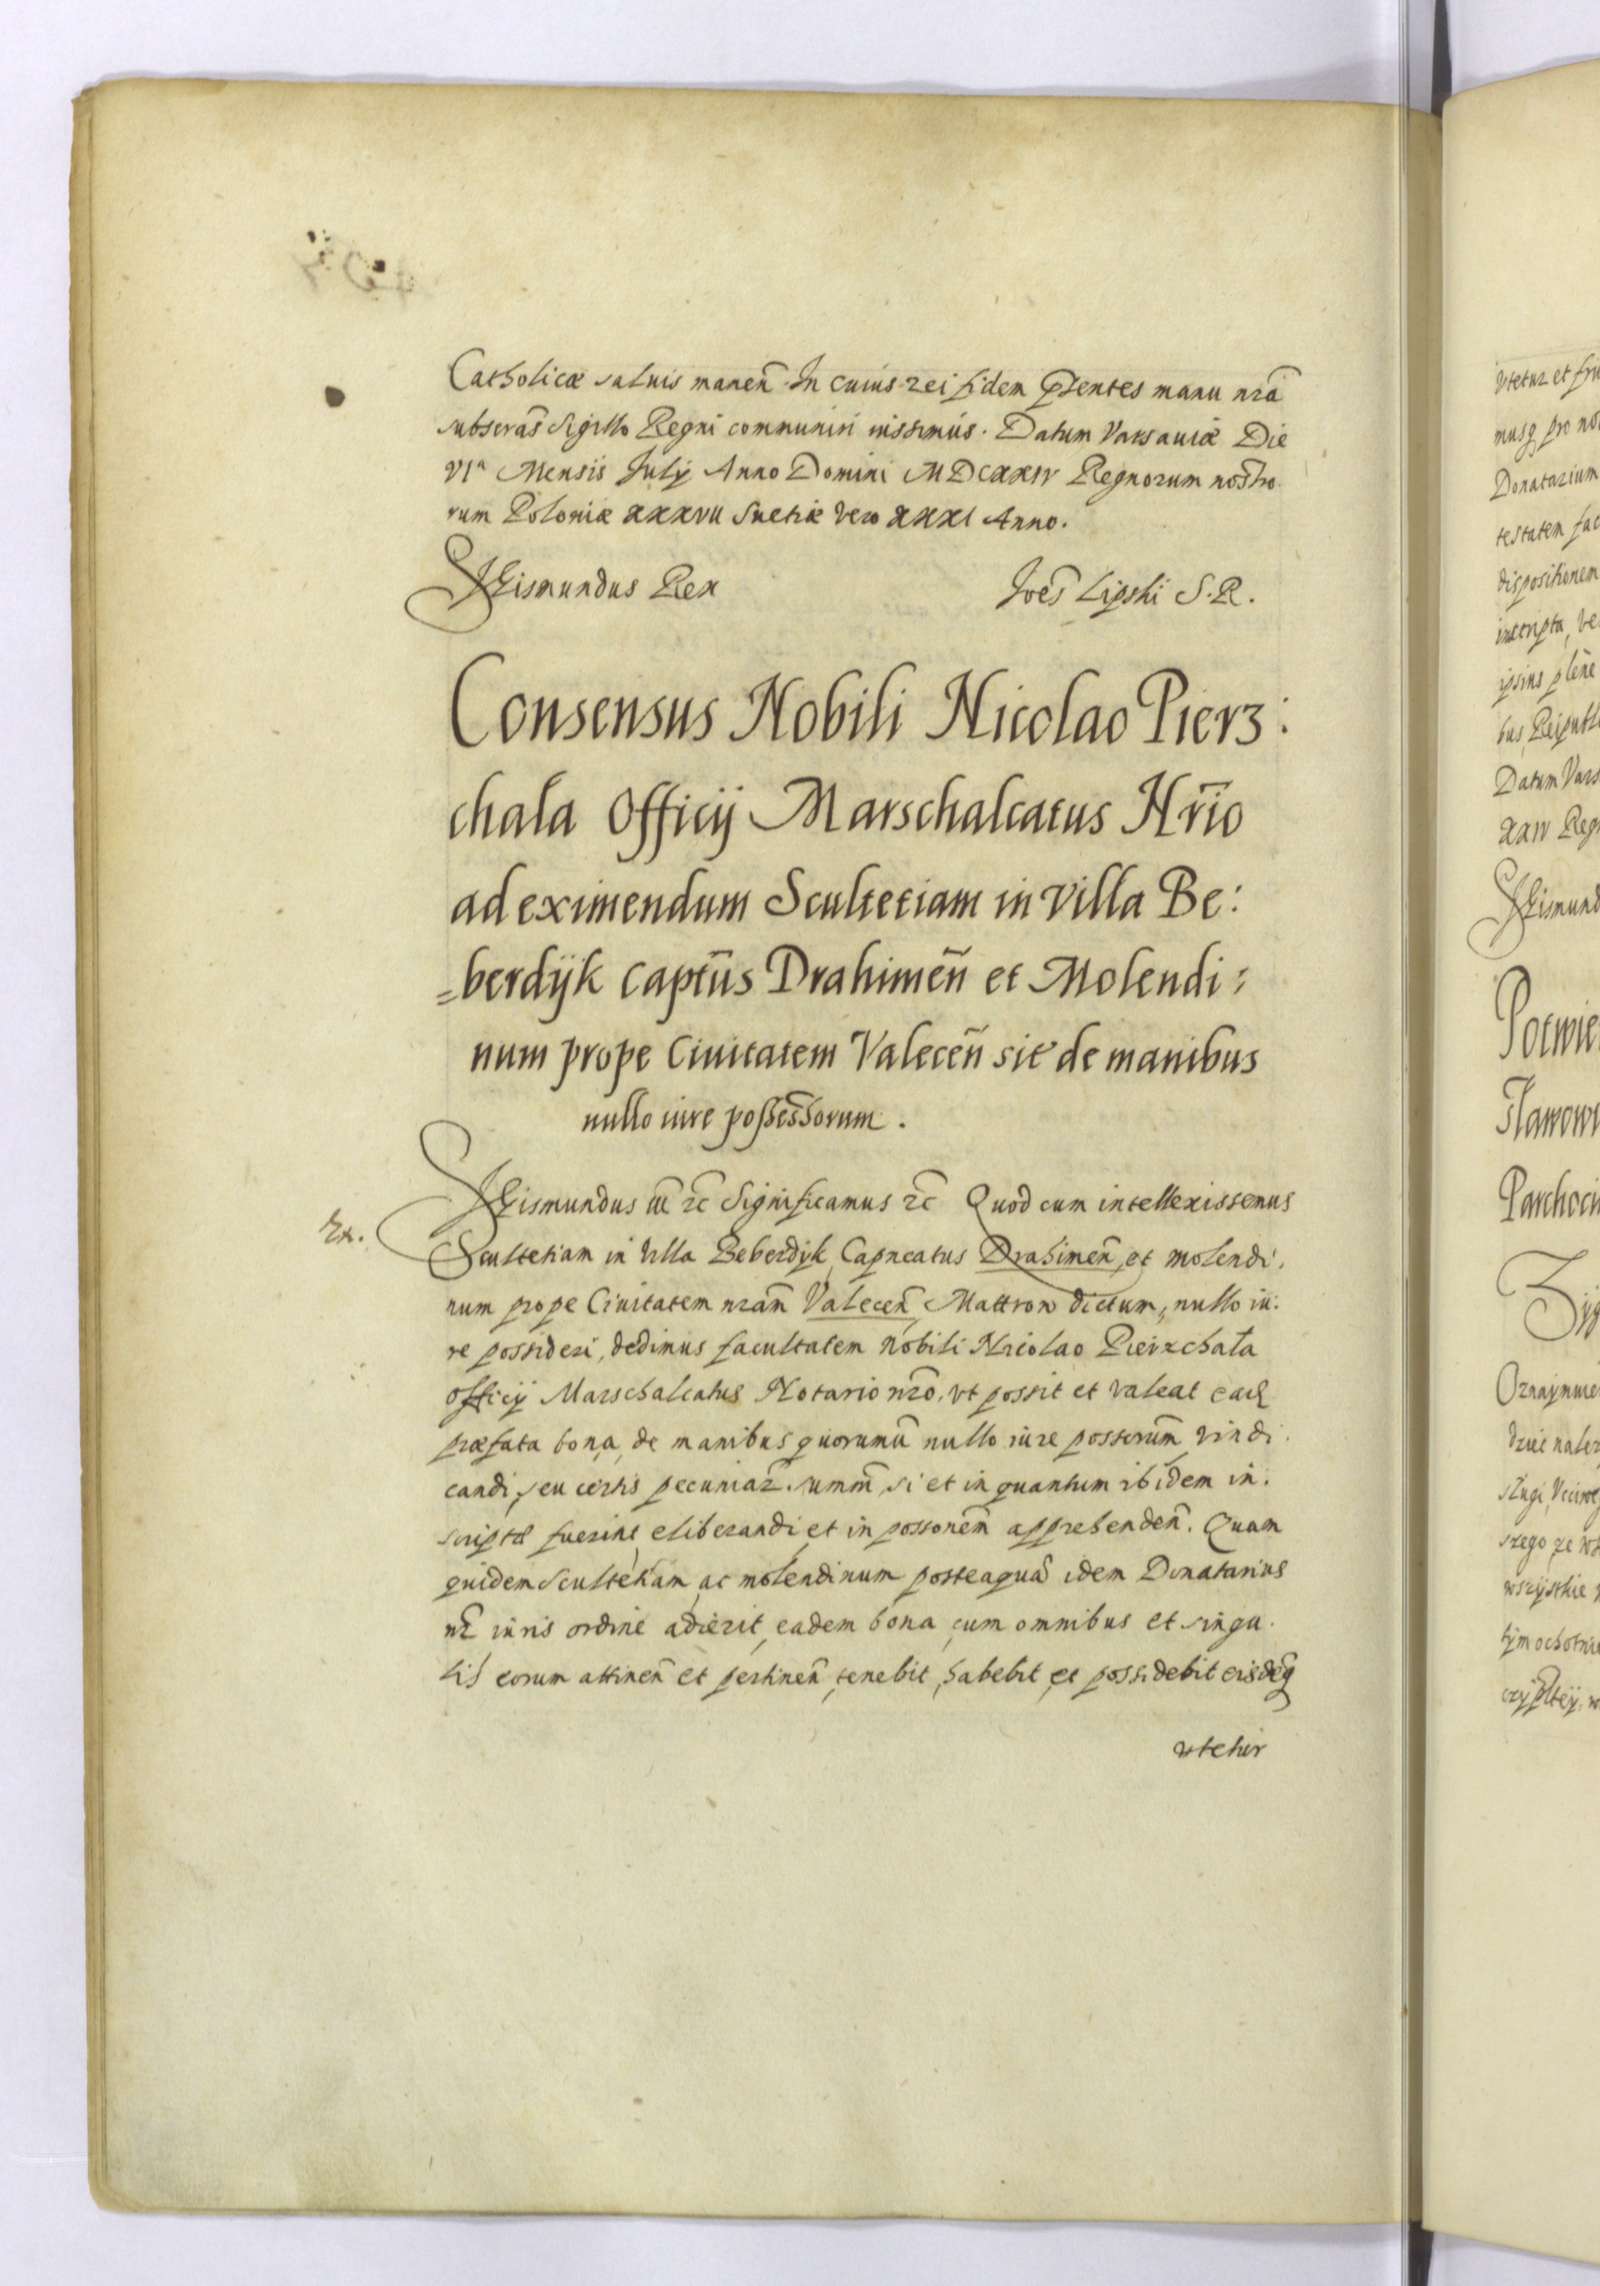 Catholicæ saluis manen̄ In cuius rei fidem p̄sentes manu nr̄a
subscras̄ Sigillo Regni communiri iussimus. Datum Varsauiæ Die
VIᵃ Mensis July Anno Domini MDCXXIV Regnorum nostro
rum Poloniæ XXXVII Suetiæ vero XXXI Anno.
Sigismundus Rex
Joēs Lipski S. R.
Consensus Nobili Nicolao Pierz:
chala Officij Marschalcatus Nr̄io
ad eximendum Scultetiam in villa Be:
=berdijk Capt̄us Drahimen̄ et Molendi:
num prope Ciuitatem Valecen̄ sit de manibus
nullo iure possessorum.
Ex.
Sigismundus III rc̄ Significamus rc̄ Quod cum intellexissemus
Scultetiam in Villa Beberdyk Capneatus Drahimen̄, et molendi,
num prope Ciuitatem nram̄ Valecen̄, Mattron dictum, nullo iu:
re possideri, dedimus facultatem Nobili Nicolao Pierzchała
officij Marschalcatus Notario nr̄o, vt possit et valeat ead̄
præfata bona de manibus quorumū nullo iure possorum̄ vindi
candi, seu certis pecuniar̄. summ̄, si et in quantum ibidem in:
scriptæ fuerint, eliberandi, et in possonem̄ apprehenden̄. Quam
quidem Scultetiam, ac molendinum posteaquā idem Donatarius
nr̄ iuris ordine adierit, eadem bona cum omnibus et singu
lis eorum attinen̄ et pertinen̄, tenebit, habebit, et possidebit eisdēq
vtetur
vtetur et fru
musq pro no
Donatarium
testatem fac
dispositionem
inscripta, ve
ipsius plene
bus Reipubl
Datum Vars
XXIV Reg
Sigismund
Potwier
Parchoci
Zyg
Oznaymuie